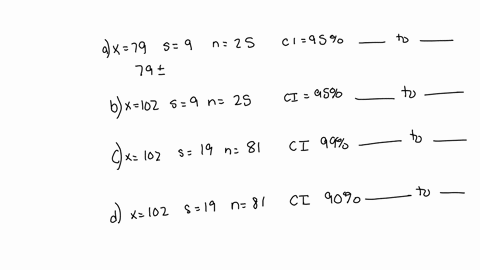 a) x=79 s=9 n=25 CI=95% ___ to ___
79±
b) x=102 s=9 n=25 CI=95% ___ to ___
c) x=102 s=19 n=81 CI 99% ___ to ___
d) x=102 s=19 n=81 CI 90% ___ to ___